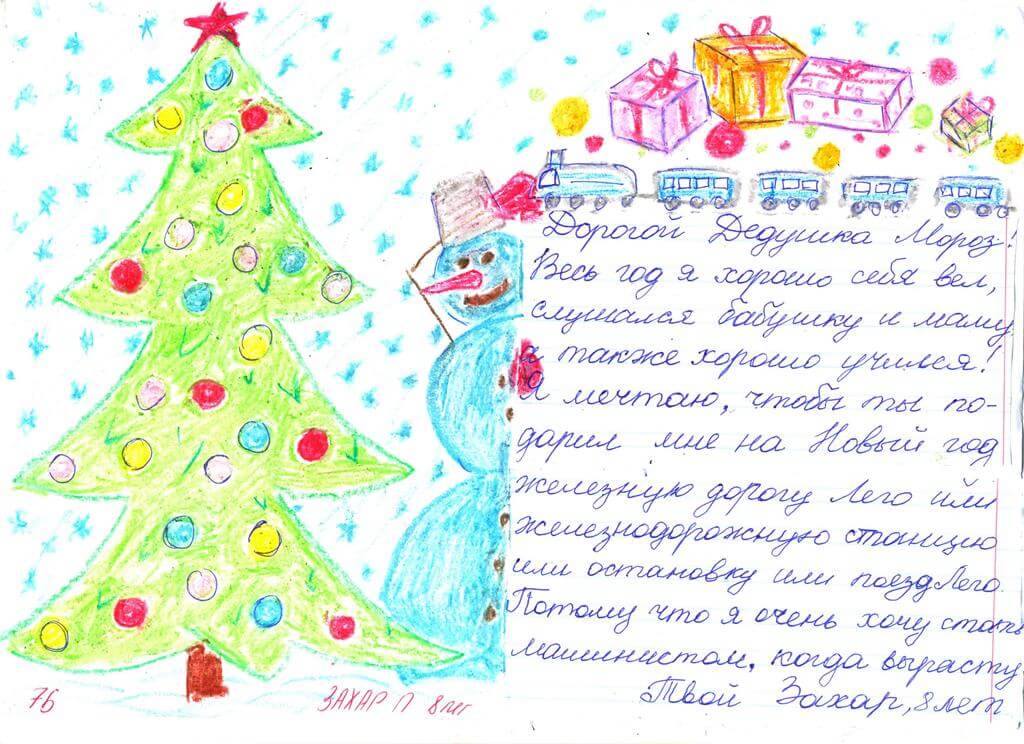 Дорогой Дедушка Мороз!
Весь год я хорошо себя вел,
слушался бабушку и маму,
а также хорошо учился!
Я мечтаю, чтобы ты по-
дарил мне на Новый год
железную дорогу Лего или
железнодорожную станцию
или остановку или поезд Лего.
Потому что я очень хочу стать
машинистом, когда вырасту.
Твой Захар, 8 лет
76 ЗАХАР П 8 лет